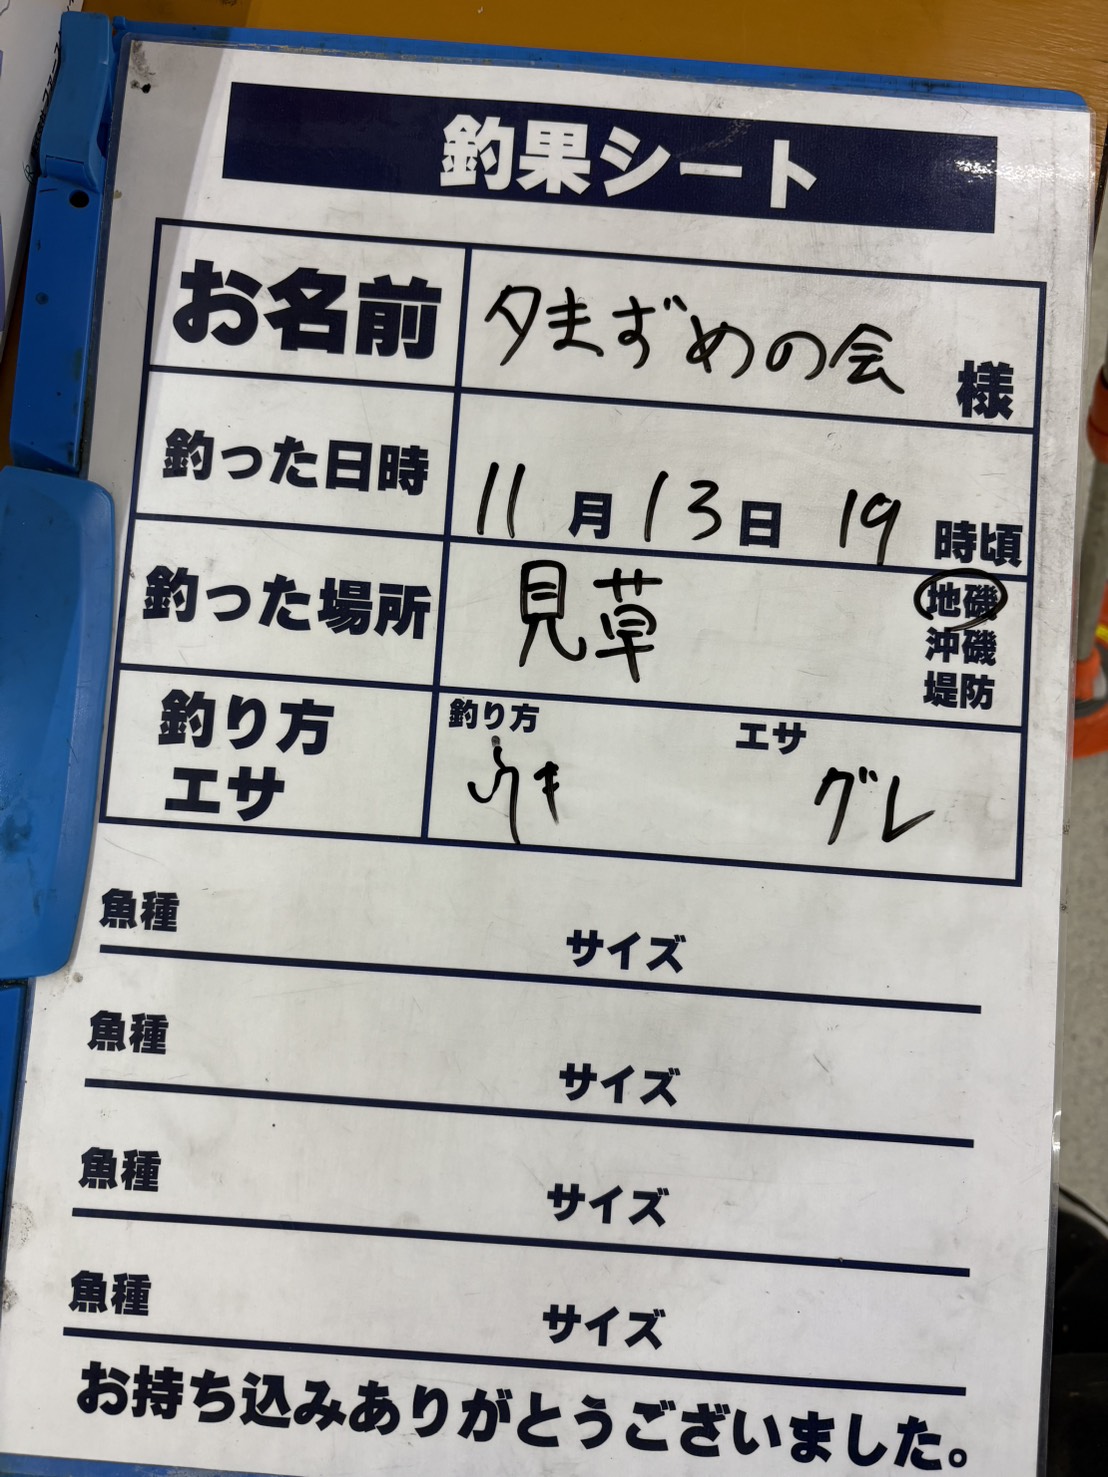 釣果シート
お名前 夕まずめの会 様
釣った日時 11月13日 19時頃
釣った場所 見草 地磯
沖磯
堤防
釣り方 エサ
釣り方 うき
エサ グレ
魚種 サイズ
魚種 サイズ
魚種 サイズ
魚種 サイズ
お持ち込みありがとうございました。